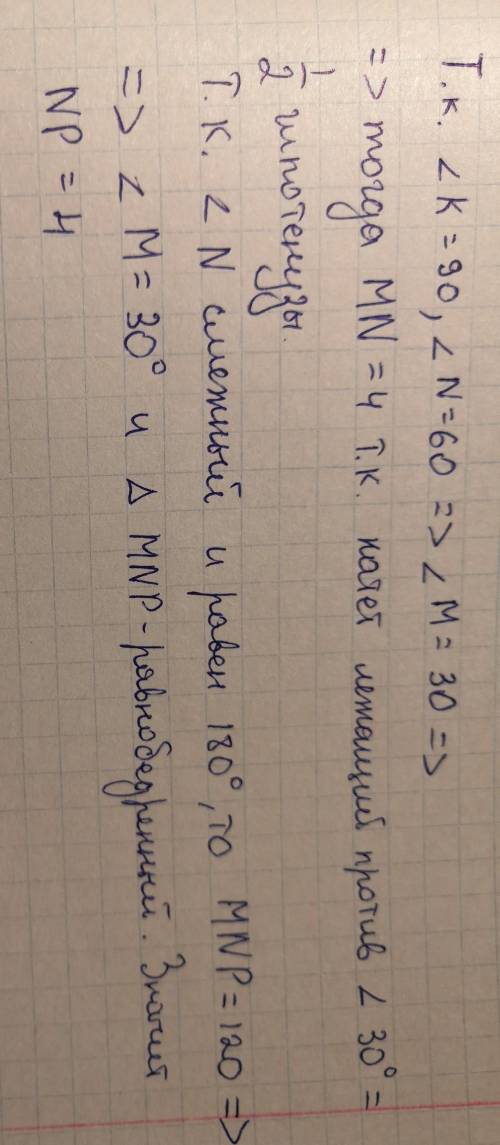 Т.к. ∠K = 90, ∠N = 60 => ∠M = 30 =>
=> тогда MN = 4 т.к. катет лежащий против ∠30° =
1/2 гипотенузы.
Т.к. ∠N смежный и равен 180°, то MNP = 120 =>
=> ∠M = 30° и △MNP - равнобедренный. Значит
NP = 4